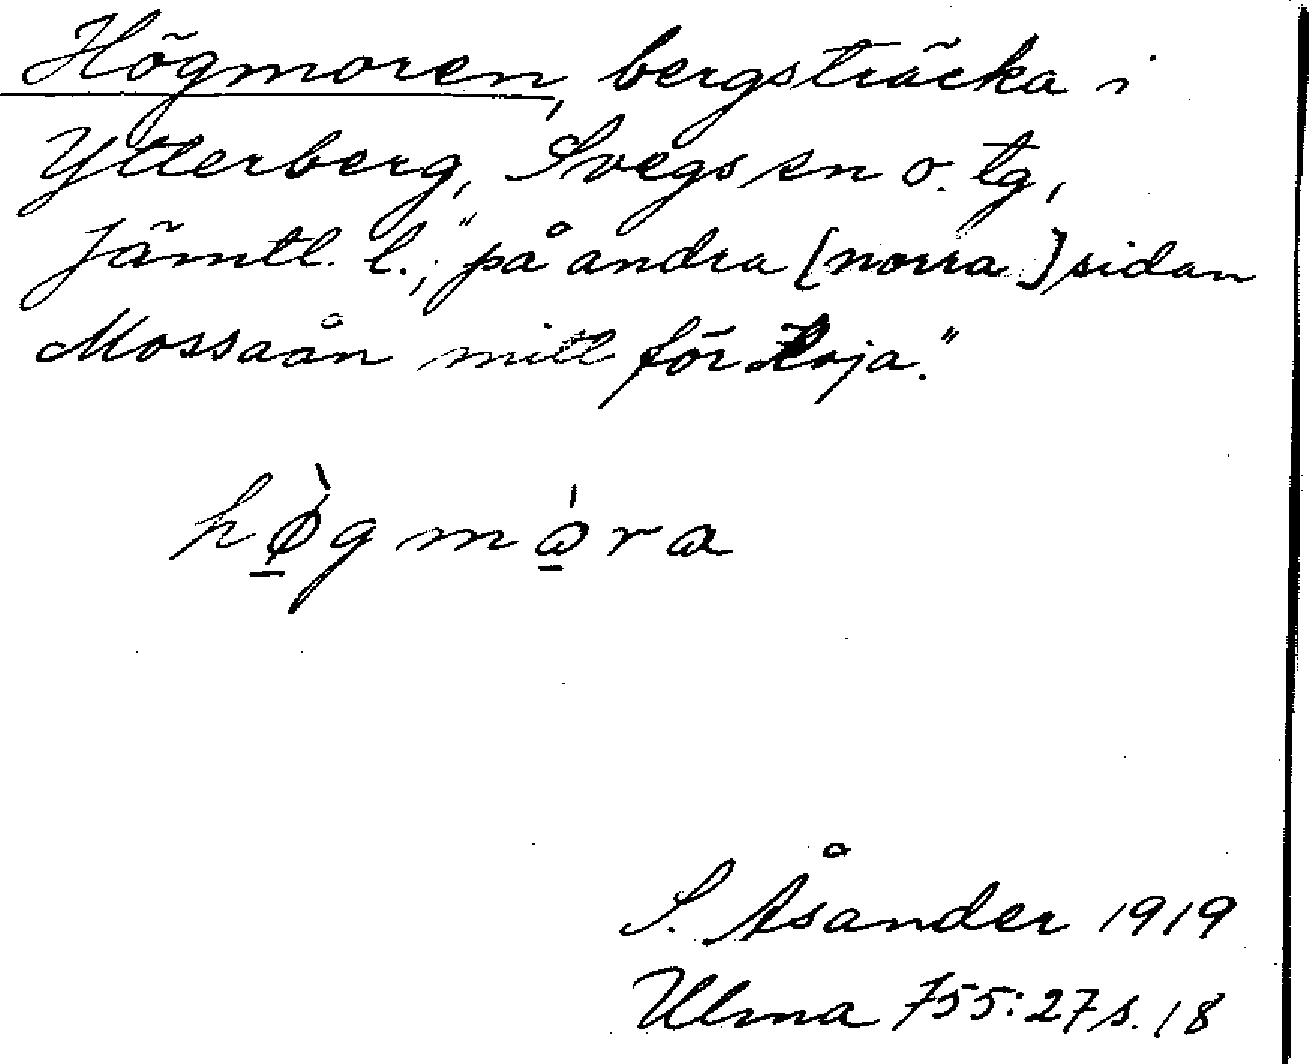 Högmoren, bergsträcka i
Ytterberg, Svegs sn o. tg,
Jämtl. l.; "på andra [norra] sidan
Mossaån mitt för Loja."
hø̀gmåra
S. Åsander 1919
Ulma 755:27 s. 18